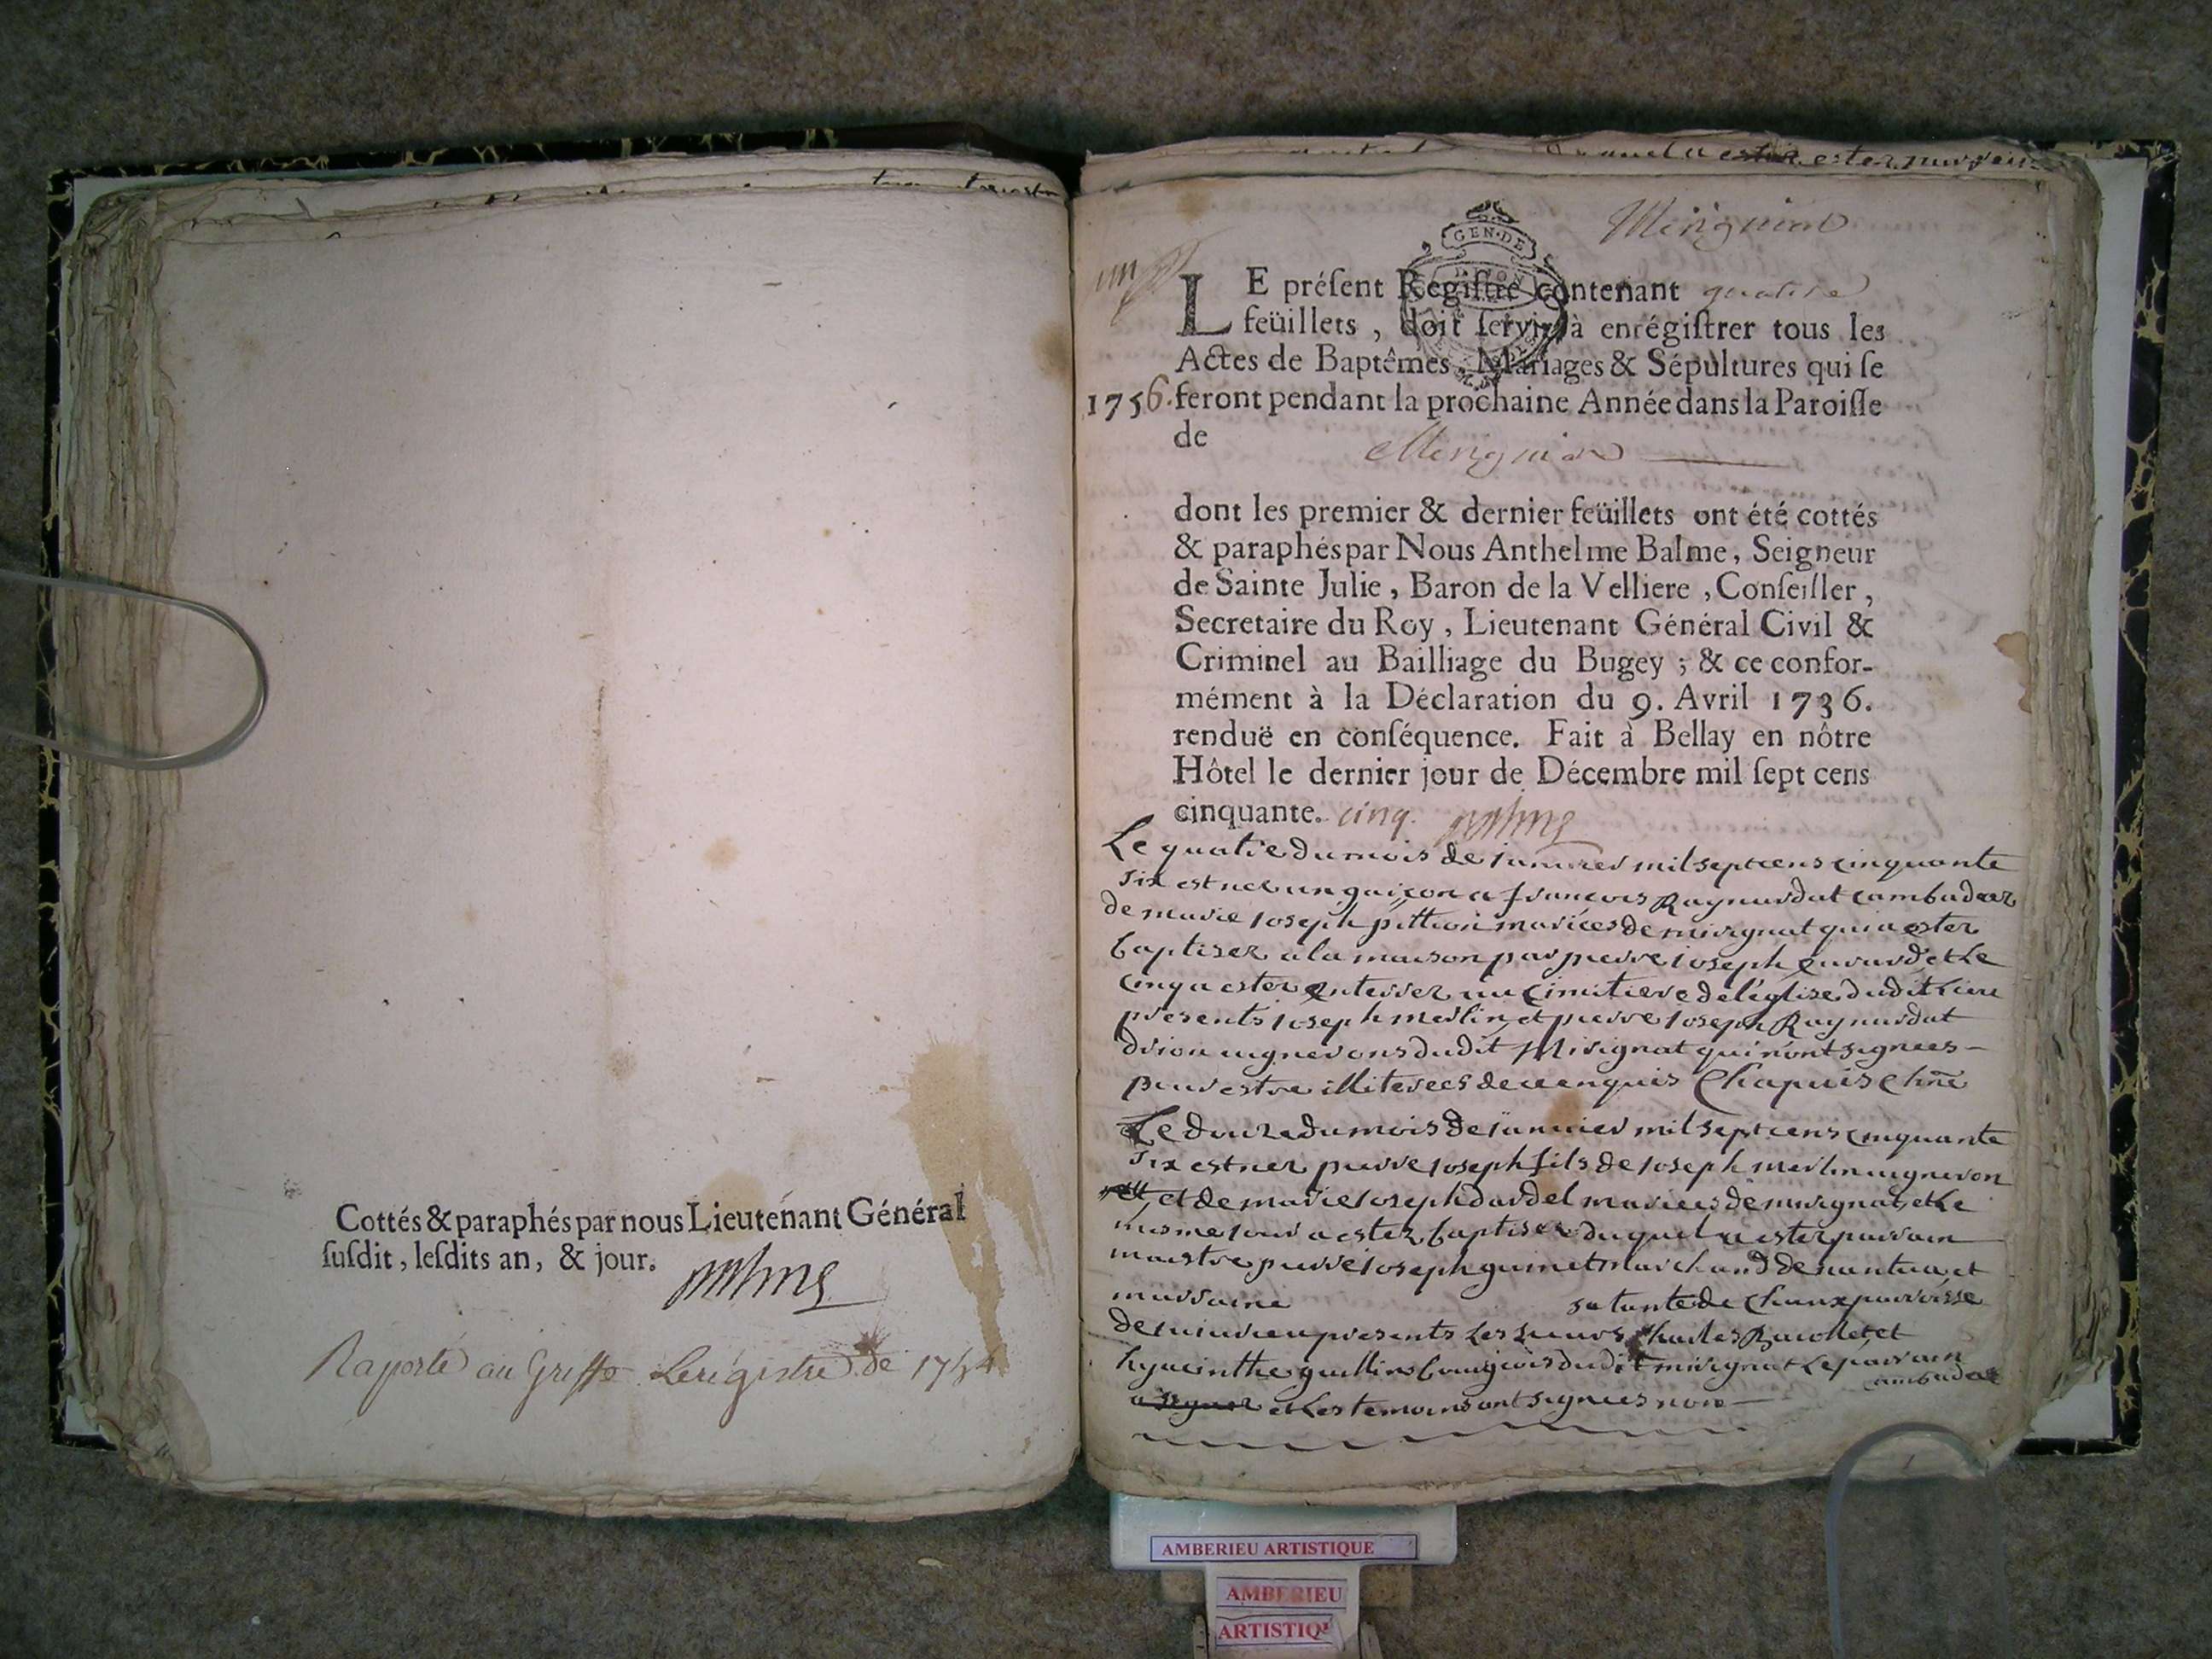 Cottés & paraphés par nous Lieutenant Général
ſuſdit, leſdits an, & jour.
Raporté au Griffe Le régistre de 1754
a ester ester
Mirignat
GEN·DE
LE préſent Regiſtre contenant quatre
feüillets, doit ſervir à enrégiſtrer tous les
Actes de Baptêmes, Mariages & Sépultures qui ſe
1756. feront pendant la prochaine Année dans la Paroiſſe
de Mirignat
dont les premier & dernier feüillets ont été cottés
& paraphés par Nous Anthelme Balme, Seigneur
de Sainte Julie, Baron de la Velliere, Conſeiller,
Secretaire du Roy, Lieutenant Général Civil &
Criminel au Bailliage du Bugey; & ce confor-
mément à la Déclaration du 9. Avril 1736.
renduë en conſéquence. Fait à Bellay en nôtre
Hôtel le dernier jour de Décembre mil ſept cens
cinquante. cinq. Balme
Le quatre du mois de ianvier mil sept cens cinquante
six est nez un gairçon a francois Raynardat
de marie ioseph pittion mariées de mirignat qui a ester
baptisez a la maison par pierre ioseph et le
cinq a ester enterrer au cimitiere de l'églize dudit lieu
presents ioseph merlin et pierre ioseph Raynardat
drion uignerons dudit Mirignat qui n'ont signees
pour estre illiterees de ce enquis Chapuis
Le douze du mois de ianvier mil sept cens cinquante
six est nez pierre ioseph fils de ioseph merlin uigneron
et de marie ioseph dardel mariees de mirignat, et le
mesme iour a ester baptisez duquel a ester pairrain
maistre pierre ioseph guinet marchand de nantua, et
marraine sa tante de Chaux parroisse
de presents les sieurs Charles et
hyacinthe guillin bourgeois dudit mirignat le pairrain
a signer et les temoins ont signees non
AMBERIEU ARTISTIQUE
AMBERIEU
ARTISTIQ